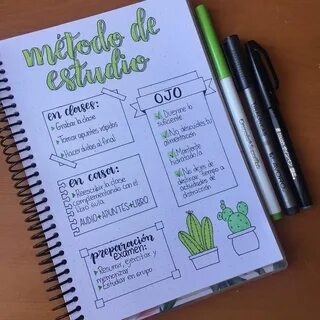 método de
estudio
en clases:
Grabar la clase
Tomar apuntes rápidos
Hacer dudas al final
en casa:
Reescuchar la clase
complementando con el
libro guía
AUDIO+APUNTES+LIBRO
preparación
examen:
Resumir, ejercitar y
memorizar
Estudiar en grupo
OJO
Duerme lo
suficiente
No descuides tu
alimentación
Mantente
hidratado/a
No dejes de
destinar tiempo a
actividades de
distracción